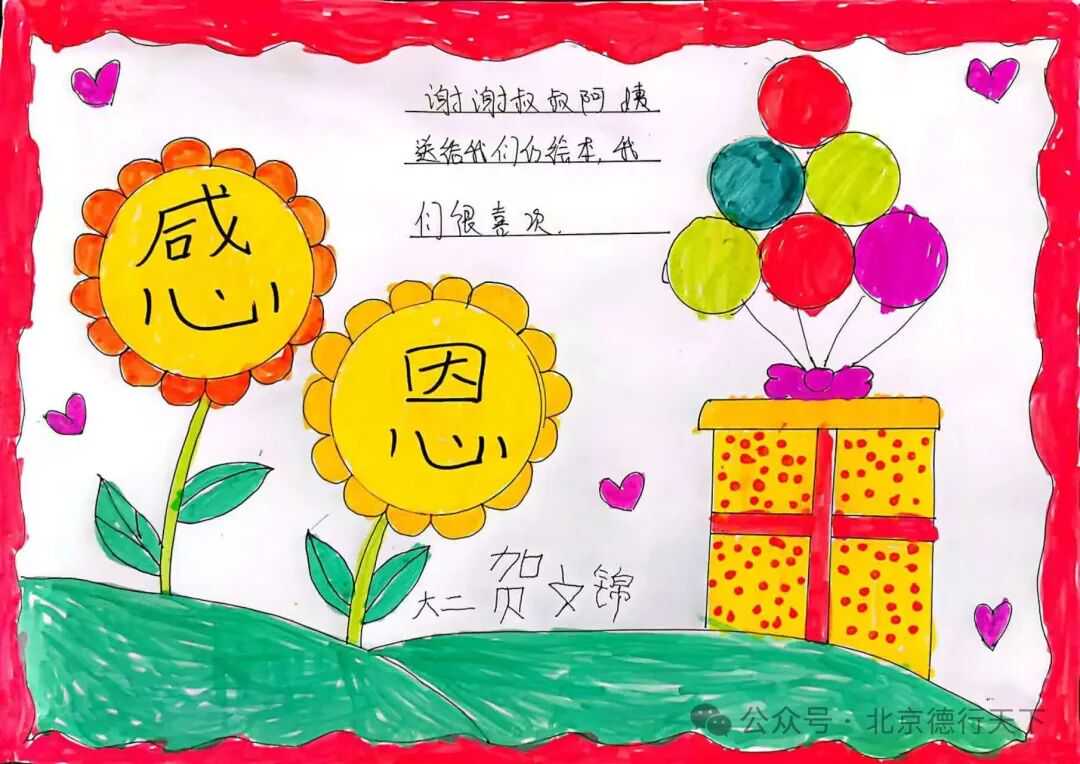 谢谢叔叔阿姨
送给我们的绘本,我
们很喜欢.
感
恩
大二 贺文锦
公众号·北京德行天下